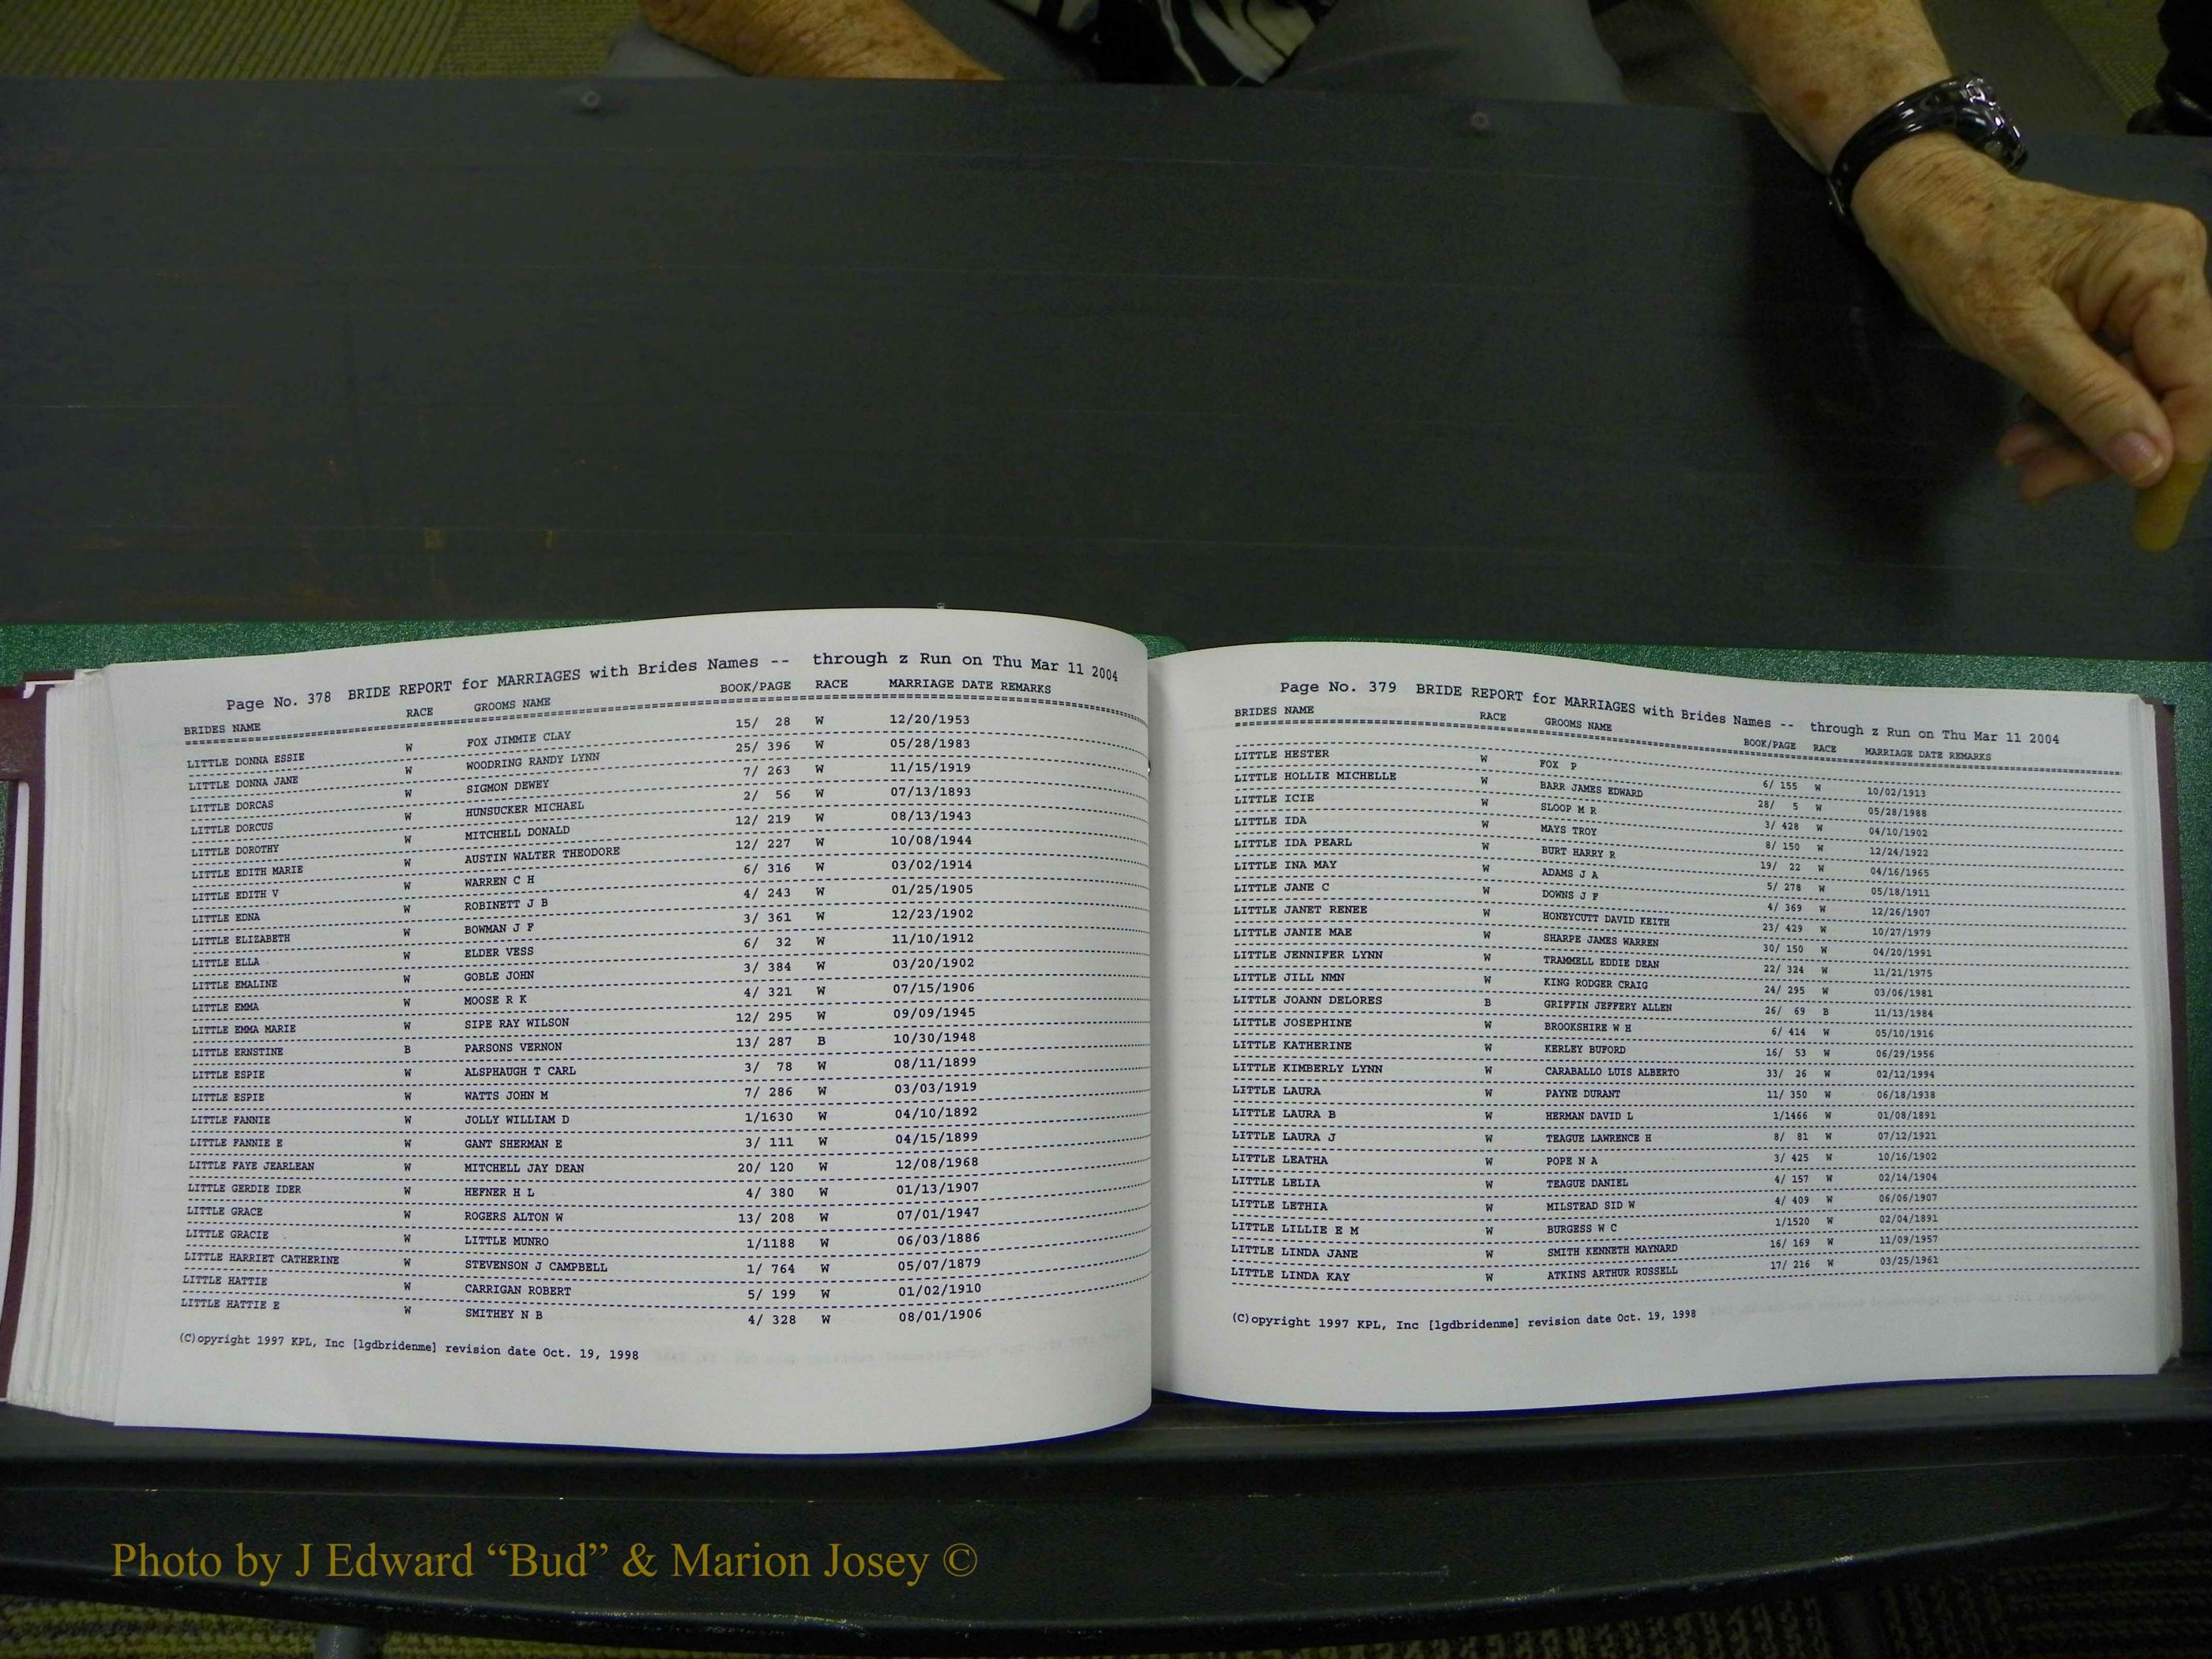 Page No. 378 BRIDE REPORT for MARRIAGES with Brides Names -- through z Run on Thu Mar 11 2004
BRIDES NAME RACE GROOMS NAME BOOK/PAGE RACE MARRIAGE DATE REMARKS
LITTLE DONNA ESSIE W FOX JIMMIE CLAY 15/ 28 W 12/20/1953
LITTLE DONNA JANE W WOODRING RANDY LYNN 25/ 396 W 05/28/1983
LITTLE DORCAS W SIGMON DEWEY 7/ 263 W 11/15/1919
LITTLE DORCUS W HUNSUCKER MICHAEL 2/ 56 W 07/13/1893
LITTLE DOROTHY W MITCHELL DONALD 12/ 219 W 08/13/1943
LITTLE EDITH MARIE W AUSTIN WALTER THEODORE 12/ 227 W 10/08/1944
LITTLE EDITH V W WARREN C H 6/ 316 W 03/02/1914
LITTLE EDNA W ROBINETT J B 4/ 243 W 01/25/1905
LITTLE ELIZABETH W BOWMAN J F 3/ 361 W 12/23/1902
LITTLE ELLA W ELDER VESS 6/ 32 W 11/10/1912
LITTLE EMALINE W GOBLE JOHN 3/ 384 W 03/20/1902
LITTLE EMMA W MOOSE R K 4/ 321 W 07/15/1906
LITTLE EMMA MARIE W SIPE RAY WILSON 12/ 295 W 09/09/1945
LITTLE ERNSTINE B PARSONS VERNON 13/ 287 B 10/30/1948
LITTLE ESPIE W ALSPHAUGH T CARL 3/ 78 W 08/11/1899
LITTLE ESPIE W WATTS JOHN M 7/ 286 W 03/03/1919
LITTLE FANNIE W JOLLY WILLIAM D 1/1630 W 04/10/1892
LITTLE FANNIE E W GANT SHERMAN E 3/ 111 W 04/15/1899
LITTLE FAYE JEARLEAN W MITCHELL JAY DEAN 20/ 120 W 12/08/1968
LITTLE GERDIE IDER W HEFNER H L 4/ 380 W 01/13/1907
LITTLE GRACE W ROGERS ALTON W 13/ 208 W 07/01/1947
LITTLE GRACIE W LITTLE MUNRO 1/1188 W 06/03/1886
LITTLE HARRIET CATHERINE W STEVENSON J CAMPBELL 1/ 764 W 05/07/1879
LITTLE HATTIE W CARRIGAN ROBERT 5/ 199 W 01/02/1910
LITTLE HATTIE E W SMITHEY N B 4/ 328 W 08/01/1906
(C)opyright 1997 KPL, Inc [lgdbridenme] revision date Oct. 19, 1998
Page No. 379 BRIDE REPORT for MARRIAGES with Brides Names -- through z Run on Thu Mar 11 2004
BRIDES NAME RACE GROOMS NAME BOOK/PAGE RACE MARRIAGE DATE REMARKS
LITTLE HESTER W FOX P 6/ 155 W 10/02/1913
LITTLE HOLLIE MICHELLE W BARR JAMES EDWARD 28/ 5 W 05/28/1988
LITTLE ICIE W SLOOP M R 3/ 428 W 04/10/1902
LITTLE IDA W MAYS TROY 8/ 150 W 12/24/1922
LITTLE IDA PEARL W BURT HARRY R 19/ 22 W 04/16/1965
LITTLE INA MAY W ADAMS J A 5/ 278 W 05/18/1911
LITTLE JANE C W DOWNS J F 4/ 369 W 12/26/1907
LITTLE JANET RENEE W HONEYCUTT DAVID KEITH 23/ 429 W 10/27/1979
LITTLE JANIE MAE W SHARPE JAMES WARREN 30/ 150 W 04/20/1991
LITTLE JENNIFER LYNN W TRAMMELL EDDIE DEAN 22/ 324 W 11/21/1975
LITTLE JILL NMN W KING RODGER CRAIG 24/ 295 W 03/06/1981
LITTLE JOANN DELORES B GRIFFIN JEFFERY ALLEN 26/ 69 B 11/13/1984
LITTLE JOSEPHINE W BROOKSHIRE W H 6/ 414 W 05/10/1916
LITTLE KATHERINE W KERLEY BUFORD 16/ 53 W 06/29/1956
LITTLE KIMBERLY LYNN W CARABALLO LUIS ALBERTO 33/ 26 W 02/12/1994
LITTLE LAURA W PAYNE DURANT 11/ 350 W 06/18/1938
LITTLE LAURA B W HERMAN DAVID L 1/1466 W 01/08/1891
LITTLE LAURA J W TEAGUE LAWRENCE H 8/ 81 W 07/12/1921
LITTLE LEATHA W POPE N A 3/ 425 W 10/16/1902
LITTLE LELIA W TEAGUE DANIEL 4/ 157 W 02/14/1904
LITTLE LETHIA W MILSTEAD SID W 4/ 409 W 06/06/1907
LITTLE LILLIE E M W BURGESS W C 1/1520 W 02/04/1891
LITTLE LINDA JANE W SMITH KENNETH MAYNARD 16/ 169 W 11/09/1957
LITTLE LINDA KAY W ATKINS ARTHUR RUSSELL 17/ 216 W 03/25/1961
(C)opyright 1997 KPL, Inc [lgdbridenme] revision date Oct. 19, 1998
Photo by J Edward “Bud” & Marion Josey ©